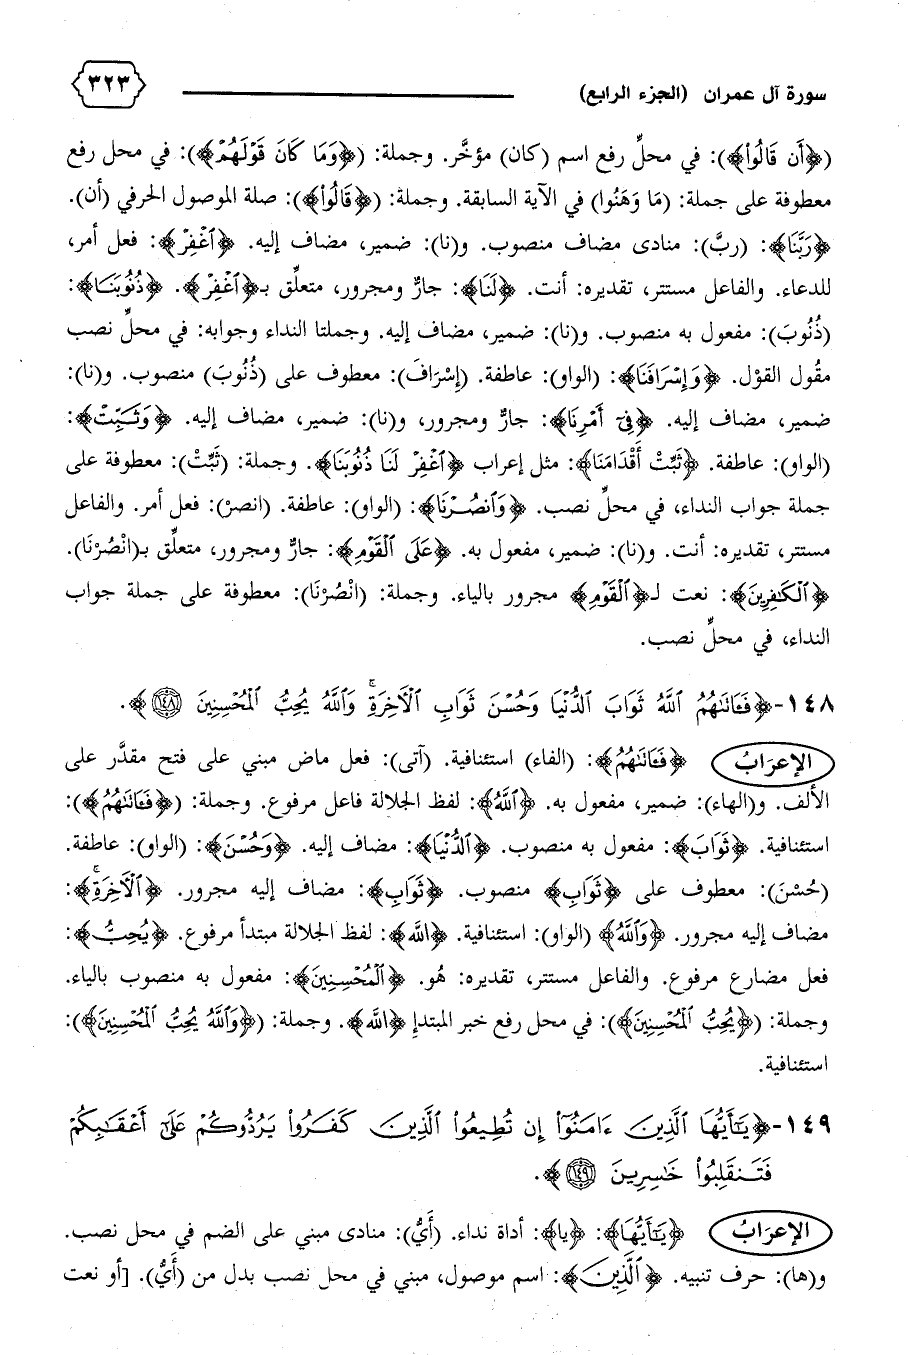 سورة آل عمران (الجزء الرابع) ٣٢٣
(﴿أَن قَالُواْ﴾): في محلِّ رفع اسم (كان) مؤخَّر. وجملة: (﴿وَمَا كَانَ قَوۡلَهُمۡ﴾): في محل رفع
معطوفة على جملة: (مَا وَهَنُوا) في الآية السابقة. وجملة: (﴿قَالُواْ﴾): صلة الموصول الحرفي (أن).
﴿رَبَّنَا﴾: (ربَّ): منادى مضاف منصوب. و(نا): ضمير، مضاف إليه. ﴿ٱغۡفِرۡ﴾: فعل أمر،
للدعاء. والفاعل مستتر، تقديره: أنت. ﴿لَنَا﴾: جارٌ ومجرور، متعلِّق بـ﴿ٱغۡفِرۡ﴾. ﴿ذُنُوبَنَا﴾:
(ذُنُوبَ): مفعول به منصوب. و(نا): ضمير، مضاف إليه. وجملتا النداء وجوابه: في محلِّ نصب
مقُول القوْل. ﴿وَإِسۡرَافَنَا﴾: (الواو): عاطفة. (إسْرَافَ): معطوف على (ذُنُوبَ) منصوب. و(نا):
ضمير، مضاف إليه. ﴿فِيٓ أَمۡرِنَا﴾: جارٌ ومجرور، و(نا): ضمير، مضاف إليه. ﴿وَثَبِّتۡ﴾:
(الواو): عاطفة. ﴿ثَبِّتۡ أَقۡدَامَنَا﴾: مثل إعراب ﴿ٱغۡفِرۡ لَنَا ذُنُوبَنَا﴾. وجملة: (ثَبِّتْ): معطوفة على
جملة جواب النداء، في محلِّ نصب. ﴿وَٱنصُرۡنَا﴾: (الواو): عاطفة. (انصرْ): فعل أمر. والفاعل
مستتر، تقديره: أنت. و(نا): ضمير، مفعول به. ﴿عَلَى ٱلۡقَوۡمِ﴾: جارٌ ومجرور، متعلِّق بـ(انْصُرْنَا).
﴿ٱلۡكَٰفِرِينَ﴾: نعت لـ﴿ٱلۡقَوۡمِ﴾ مجرور بالياء. وجملة: (انْصُرْنَا): معطوفة على جملة جواب
النداء، في محلِّ نصب.
١٤٨-﴿فَـَٔاتَىٰهُمُ ٱللَّهُ ثَوَابَ ٱلدُّنۡيَا وَحُسۡنَ ثَوَابِ ٱلۡأٓخِرَةِۗ وَٱللَّهُ يُحِبُّ ٱلۡمُحۡسِنِينَ ١٤٨﴾.
الإعرَابُ ﴿فَـَٔاتَىٰهُمُ﴾: (الفاء) استئنافية. (آتى): فعل ماض مبني على فتح مقدَّر على
الألف. و(الهاء): ضمير، مفعول به. ﴿ٱللَّهُ﴾: لفظ الجلالة فاعل مرفوع. وجملة: (﴿فَـَٔاتَىٰهُمُ﴾):
استئنافية. ﴿ثَوَابَ﴾: مفعول به منصوب. ﴿ٱلدُّنۡيَا﴾: مضاف إليه. ﴿وَحُسۡنَ﴾: (الواو): عاطفة.
(حُسْنَ): معطوف على ﴿ثَوَابِ﴾ منصوب. ﴿ثَوَابِ﴾: مضاف إليه مجرور. ﴿ٱلۡأٓخِرَةِۗ﴾:
مضاف إليه مجرور. ﴿وَٱللَّهُ﴾ (الواو): استئنافية. ﴿الله﴾: لفظ الجلالة مبتدأ مرفوع. ﴿يُحِبُّ﴾:
فعل مضارع مرفوع. والفاعل مستتر، تقديره: هُو. ﴿ٱلۡمُحۡسِنِينَ﴾: مفعول به منصوب بالياء.
وجملة: (﴿يُحِبُّ ٱلۡمُحۡسِنِينَ﴾): في محل رفع خبر المبتدإ ﴿الله﴾. وجملة: (﴿وَٱللَّهُ يُحِبُّ ٱلۡمُحۡسِنِينَ﴾):
استئنافية.
١٤٩-﴿يَٰٓأَيُّهَا ٱلَّذِينَ ءَامَنُوٓاْ إِن تُطِيعُواْ ٱلَّذِينَ كَفَرُواْ يَرُدُّوكُمۡ عَلَىٰٓ أَعۡقَٰبِكُمۡ
فَتَنقَلِبُواْ خَٰسِرِينَ ١٤٩﴾.
الإعرَابُ ﴿يَٰٓأَيُّهَا﴾: ﴿يا﴾: أداة نداء. (أَيُّ): منادى مبني على الضم في محل نصب.
و(ها): حرف تنبيه. ﴿ٱلَّذِينَ﴾: اسم موصول، مبني في محل نصب بدل من (أَيُّ). [أو نعت